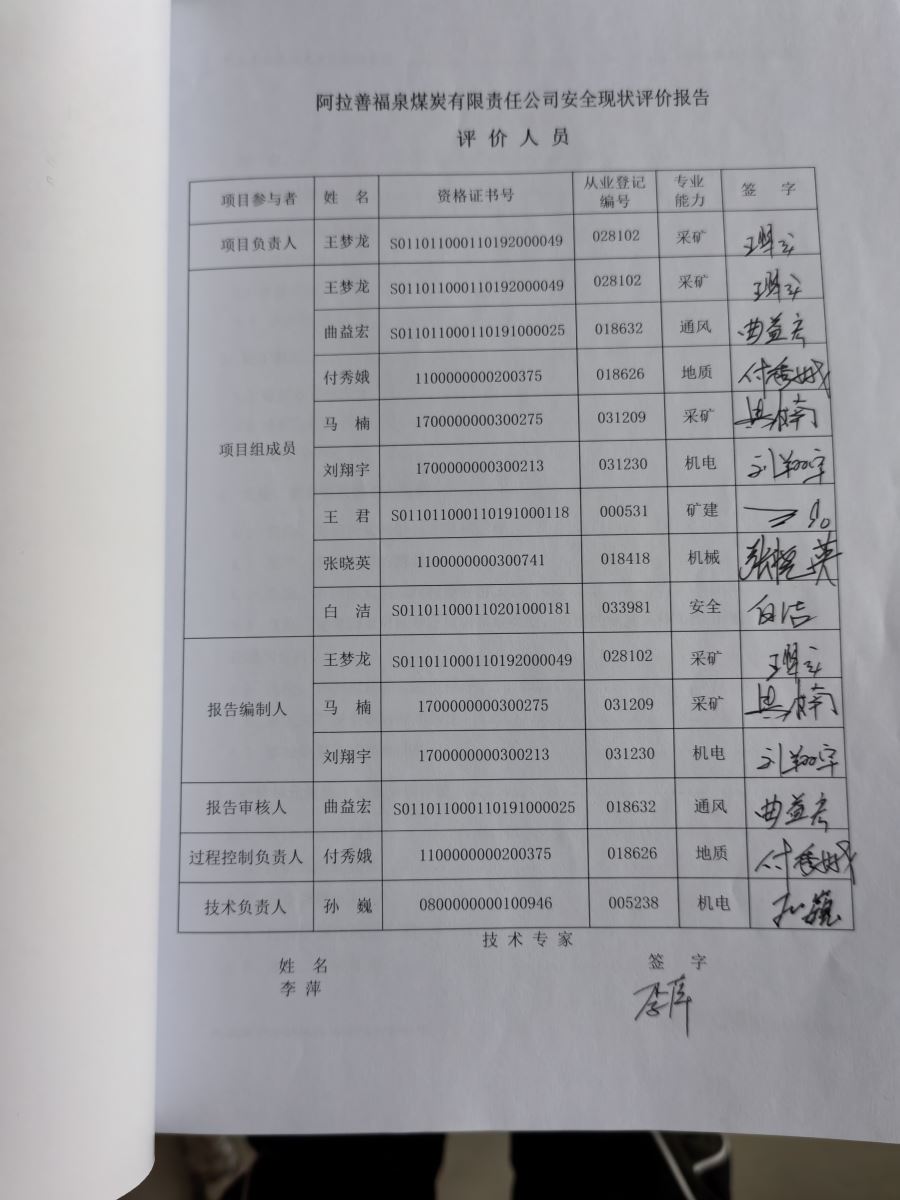 阿拉善福泉煤炭有限责任公司安全现状评价报告
评价人员
项目参与者 姓 名 资格证书号 从业登记编号 专业能力 签 字
项目负责人 王梦龙 S011011000110192000049 028102 采矿 王梦龙
项目组成员 王梦龙 S011011000110192000049 028102 采矿 王梦龙
曲益宏 S011011000110191000025 018632 通风 曲益宏
付秀娥 1100000000200375 018626 地质 付秀娥
马 楠 1700000000300275 031209 采矿 马楠
刘翔宇 1700000000300213 031230 机电 刘翔宇
王 君 S011011000110191000118 000531 矿建 王君
张晓英 1100000000300741 018418 机械 张晓英
白 洁 S011011000110201000181 033981 安全 白洁
报告编制人 王梦龙 S011011000110192000049 028102 采矿 王梦龙
马 楠 1700000000300275 031209 采矿 马楠
刘翔宇 1700000000300213 031230 机电 刘翔宇
报告审核人 曲益宏 S011011000110191000025 018632 通风 曲益宏
过程控制负责人 付秀娥 1100000000200375 018626 地质 付秀娥
技术负责人 孙 巍 0800000000100946 005238 机电 孙巍
技 术 专 家
姓 名 签 字
李 萍 李萍